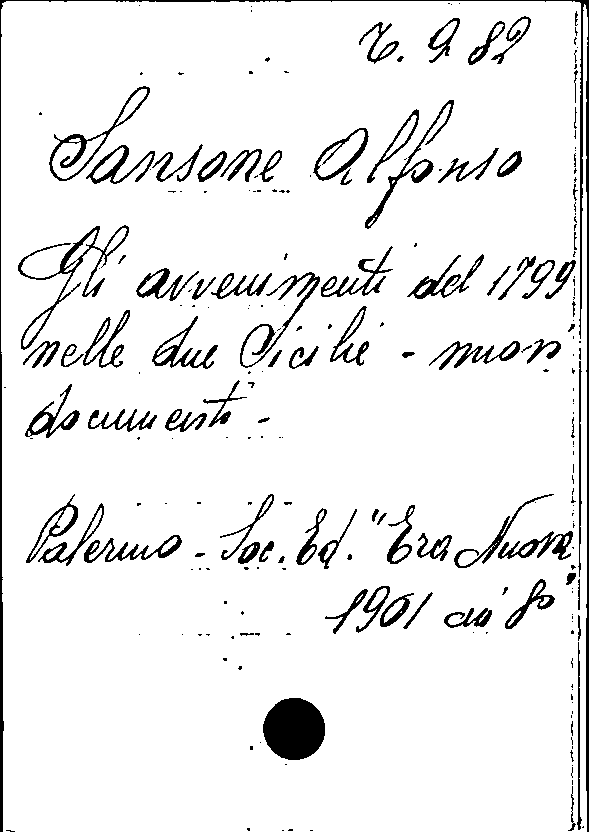 7. 9 82
Sansone Alfonso
Gli avvenimenti del 1799
nelle due Sicilie - nuovi
documenti -
Palermo - Soc. Ed. "Era Nuova"
1901 in 8°